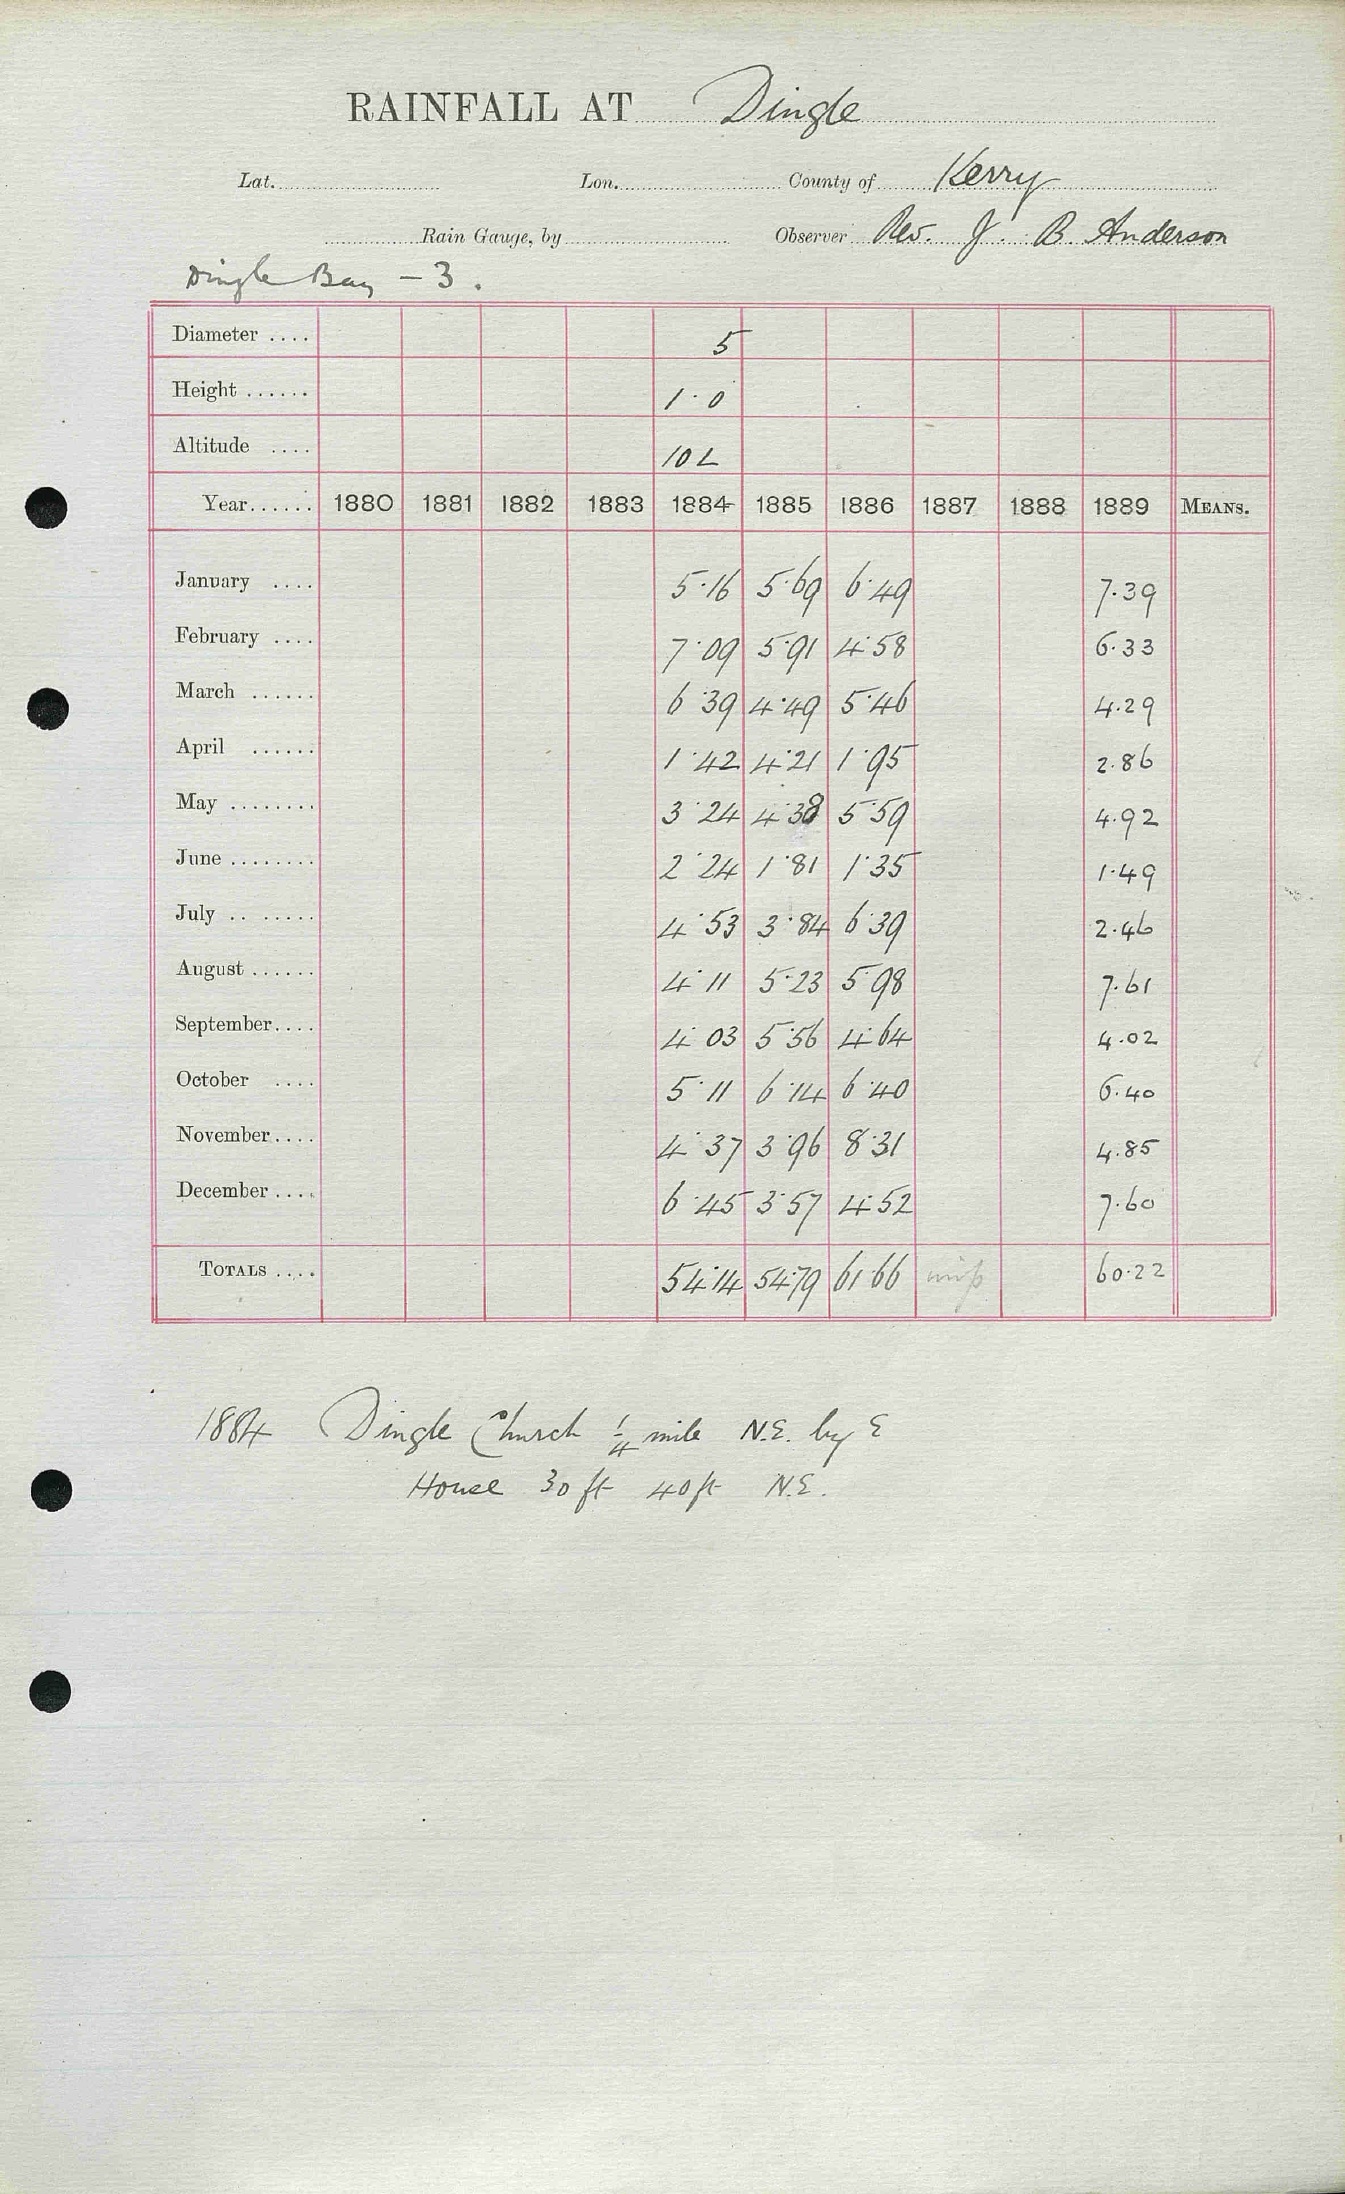 RAINFALL AT Dingle
Lat. Lon. County of Kerry
Rain Gauge, by Observer Rev. J. B. Anderson
Dingle Bay - 3.
Diameter .... 5
Height ...... 1·0
Altitude .... 10 L
Year...... 1880 1881 1882 1883 1884 1885 1886 1887 1888 1889 MEANS.
January .... 5·16 5·69 6·49 7·39
February .... 7·09 5·91 4·58 6·33
March ...... 6·39 4·49 5·46 4·29
April ...... 1·42 4·21 1·95 2·86
May ........ 3·24 4·38 5·59 4·92
June ........ 2·24 1·81 1·35 1·49
July .. ..... 4·53 3·84 6·39 2·46
August ...... 4·11 5·23 5·98 7·61
September.... 4·03 5·56 4·64 4·02
October .... 5·11 6·14 6·40 6·40
November.... 4·37 3·96 8·31 4·85
December.... 6·45 3·57 4·52 7·60
TOTALS .... 54·14 54·79 61·66 60·22
1884 Dingle Church 1/4 mile N.E. by E
House 30 ft 40 ft N.E.